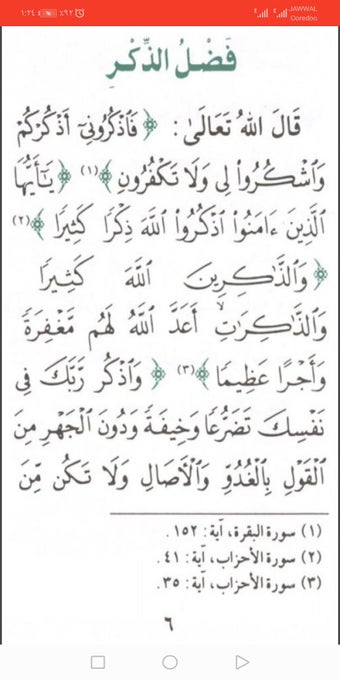 ١:٢٤ ٩٢٪
JAWWAL
Ooredoo
فَضْلُ الذِّكْرِ
قَالَ اللهُ تَعَالَىٰ: ﴿فَٱذْكُرُونِىٓ أَذْكُرْكُمْ
وَٱشْكُرُوا۟ لِى وَلَا تَكْفُرُونِ﴾(١) ﴿يَـٰٓأَيُّهَا
ٱلَّذِينَ ءَامَنُوا۟ ٱذْكُرُوا۟ ٱللَّهَ ذِكْرًا كَثِيرًا﴾(٢)
﴿وَٱلذَّٰكِرِينَ ٱللَّهَ كَثِيرًا
وَٱلذَّٰكِرَٰتِ أَعَدَّ ٱللَّهُ لَهُم مَّغْفِرَةً
وَأَجْرًا عَظِيمًا﴾(٣) ﴿وَٱذْكُر رَّبَّكَ فِى
نَفْسِكَ تَضَرُّعًا وَخِيفَةً وَدُونَ ٱلْجَهْرِ مِنَ
ٱلْقَوْلِ بِٱلْغُدُوِّ وَٱلْـَٔاصَالِ وَلَا تَكُن مِّنَ
(١) سورة البقرة، آية: ١٥٢.
(٢) سورة الأحزاب، آية: ٤١.
(٣) سورة الأحزاب، آية: ٣٥.
٦